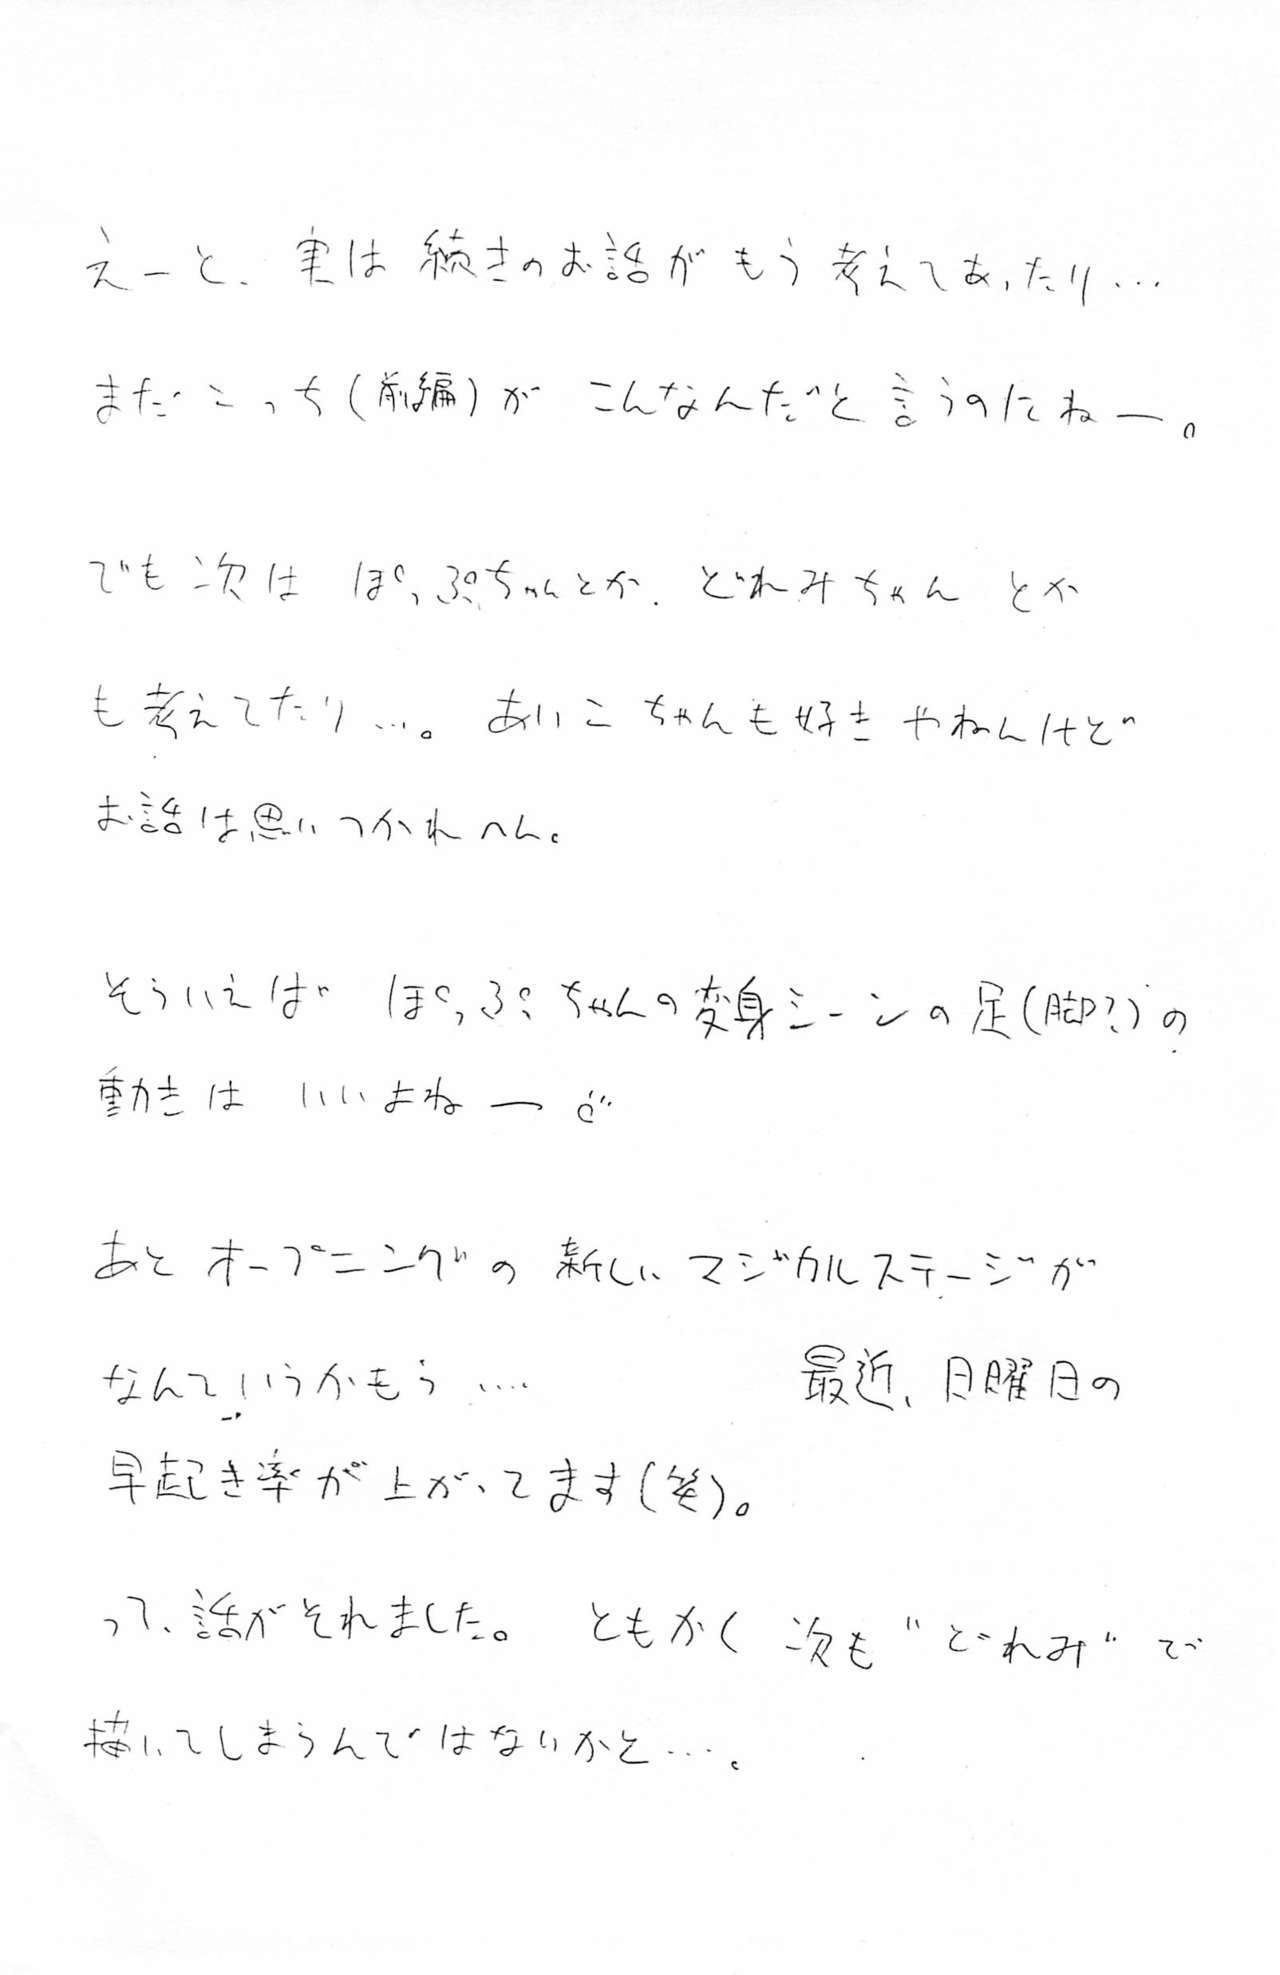 えーと、実は続きのお話がもう考えてあったり…
まだこっち(前編)がこんなんだと言うのにねー。
でも次は ぽっぷちゃんとか、どれみちゃんとか
も考えてたり…。あいこちゃんも好きやねんけど
お話は思いつかれへん。
そういえば ぽっぷちゃんの変身シーンの足(脚?)の
動きは いいよねー
あとオープニングの新しいマジカルステージが
なんていうかもう…. 最近、日曜日の
早起き率が上がってます(笑)。
って、話がそれました。ともかく次も"どれみ"で
描いてしまうんではないかと…。